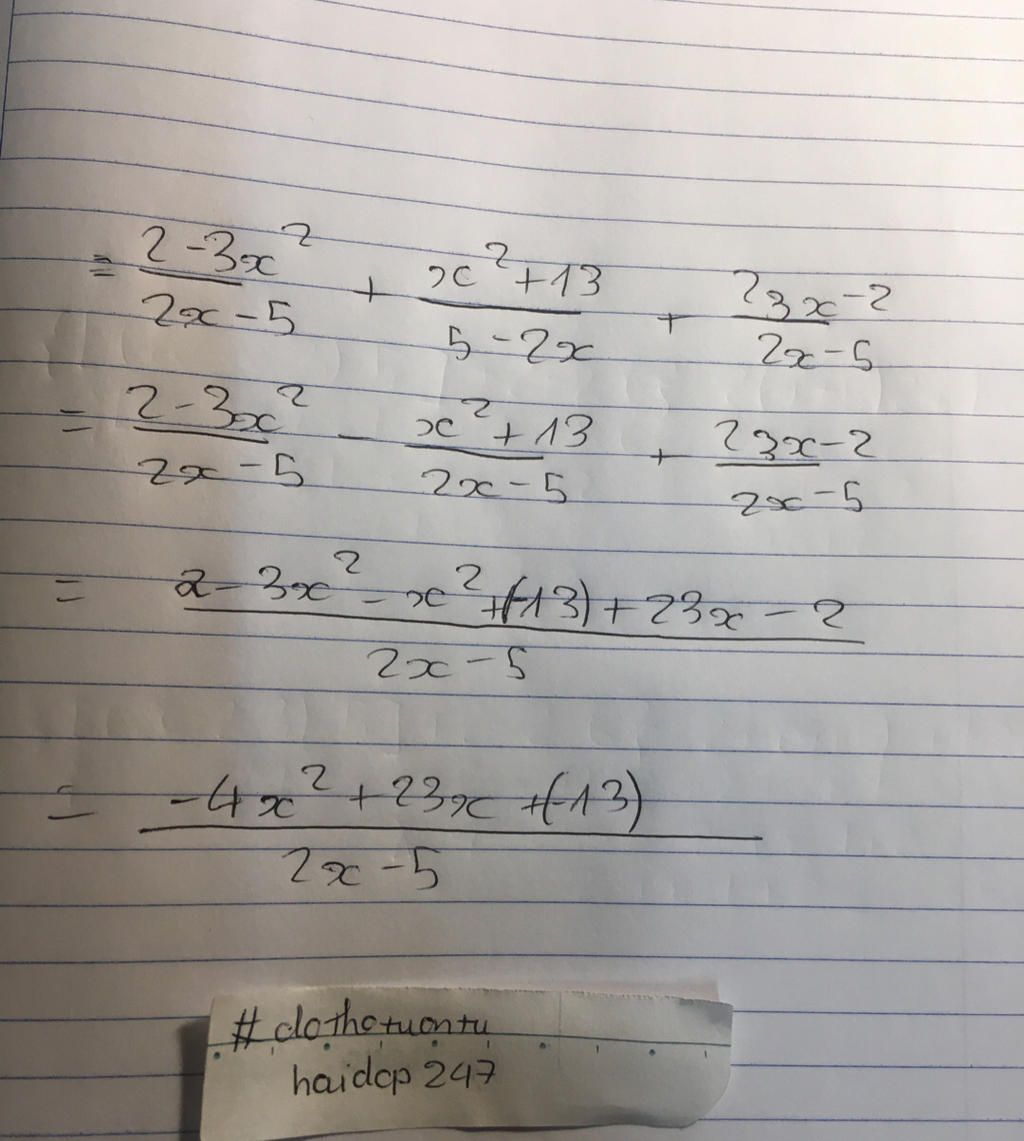 = 2-3x² / 2x-5 + x²+13 / 5-2x + 23x-2 / 2x-5
= 2-3x² / 2x-5 - x²+13 / 2x-5 + 23x-2 / 2x-5
= 2-3x²-x²+(-13)+23x-2 / 2x-5
= -4x²+23x+(-13) / 2x-5
#dothotuontu
haidcp247